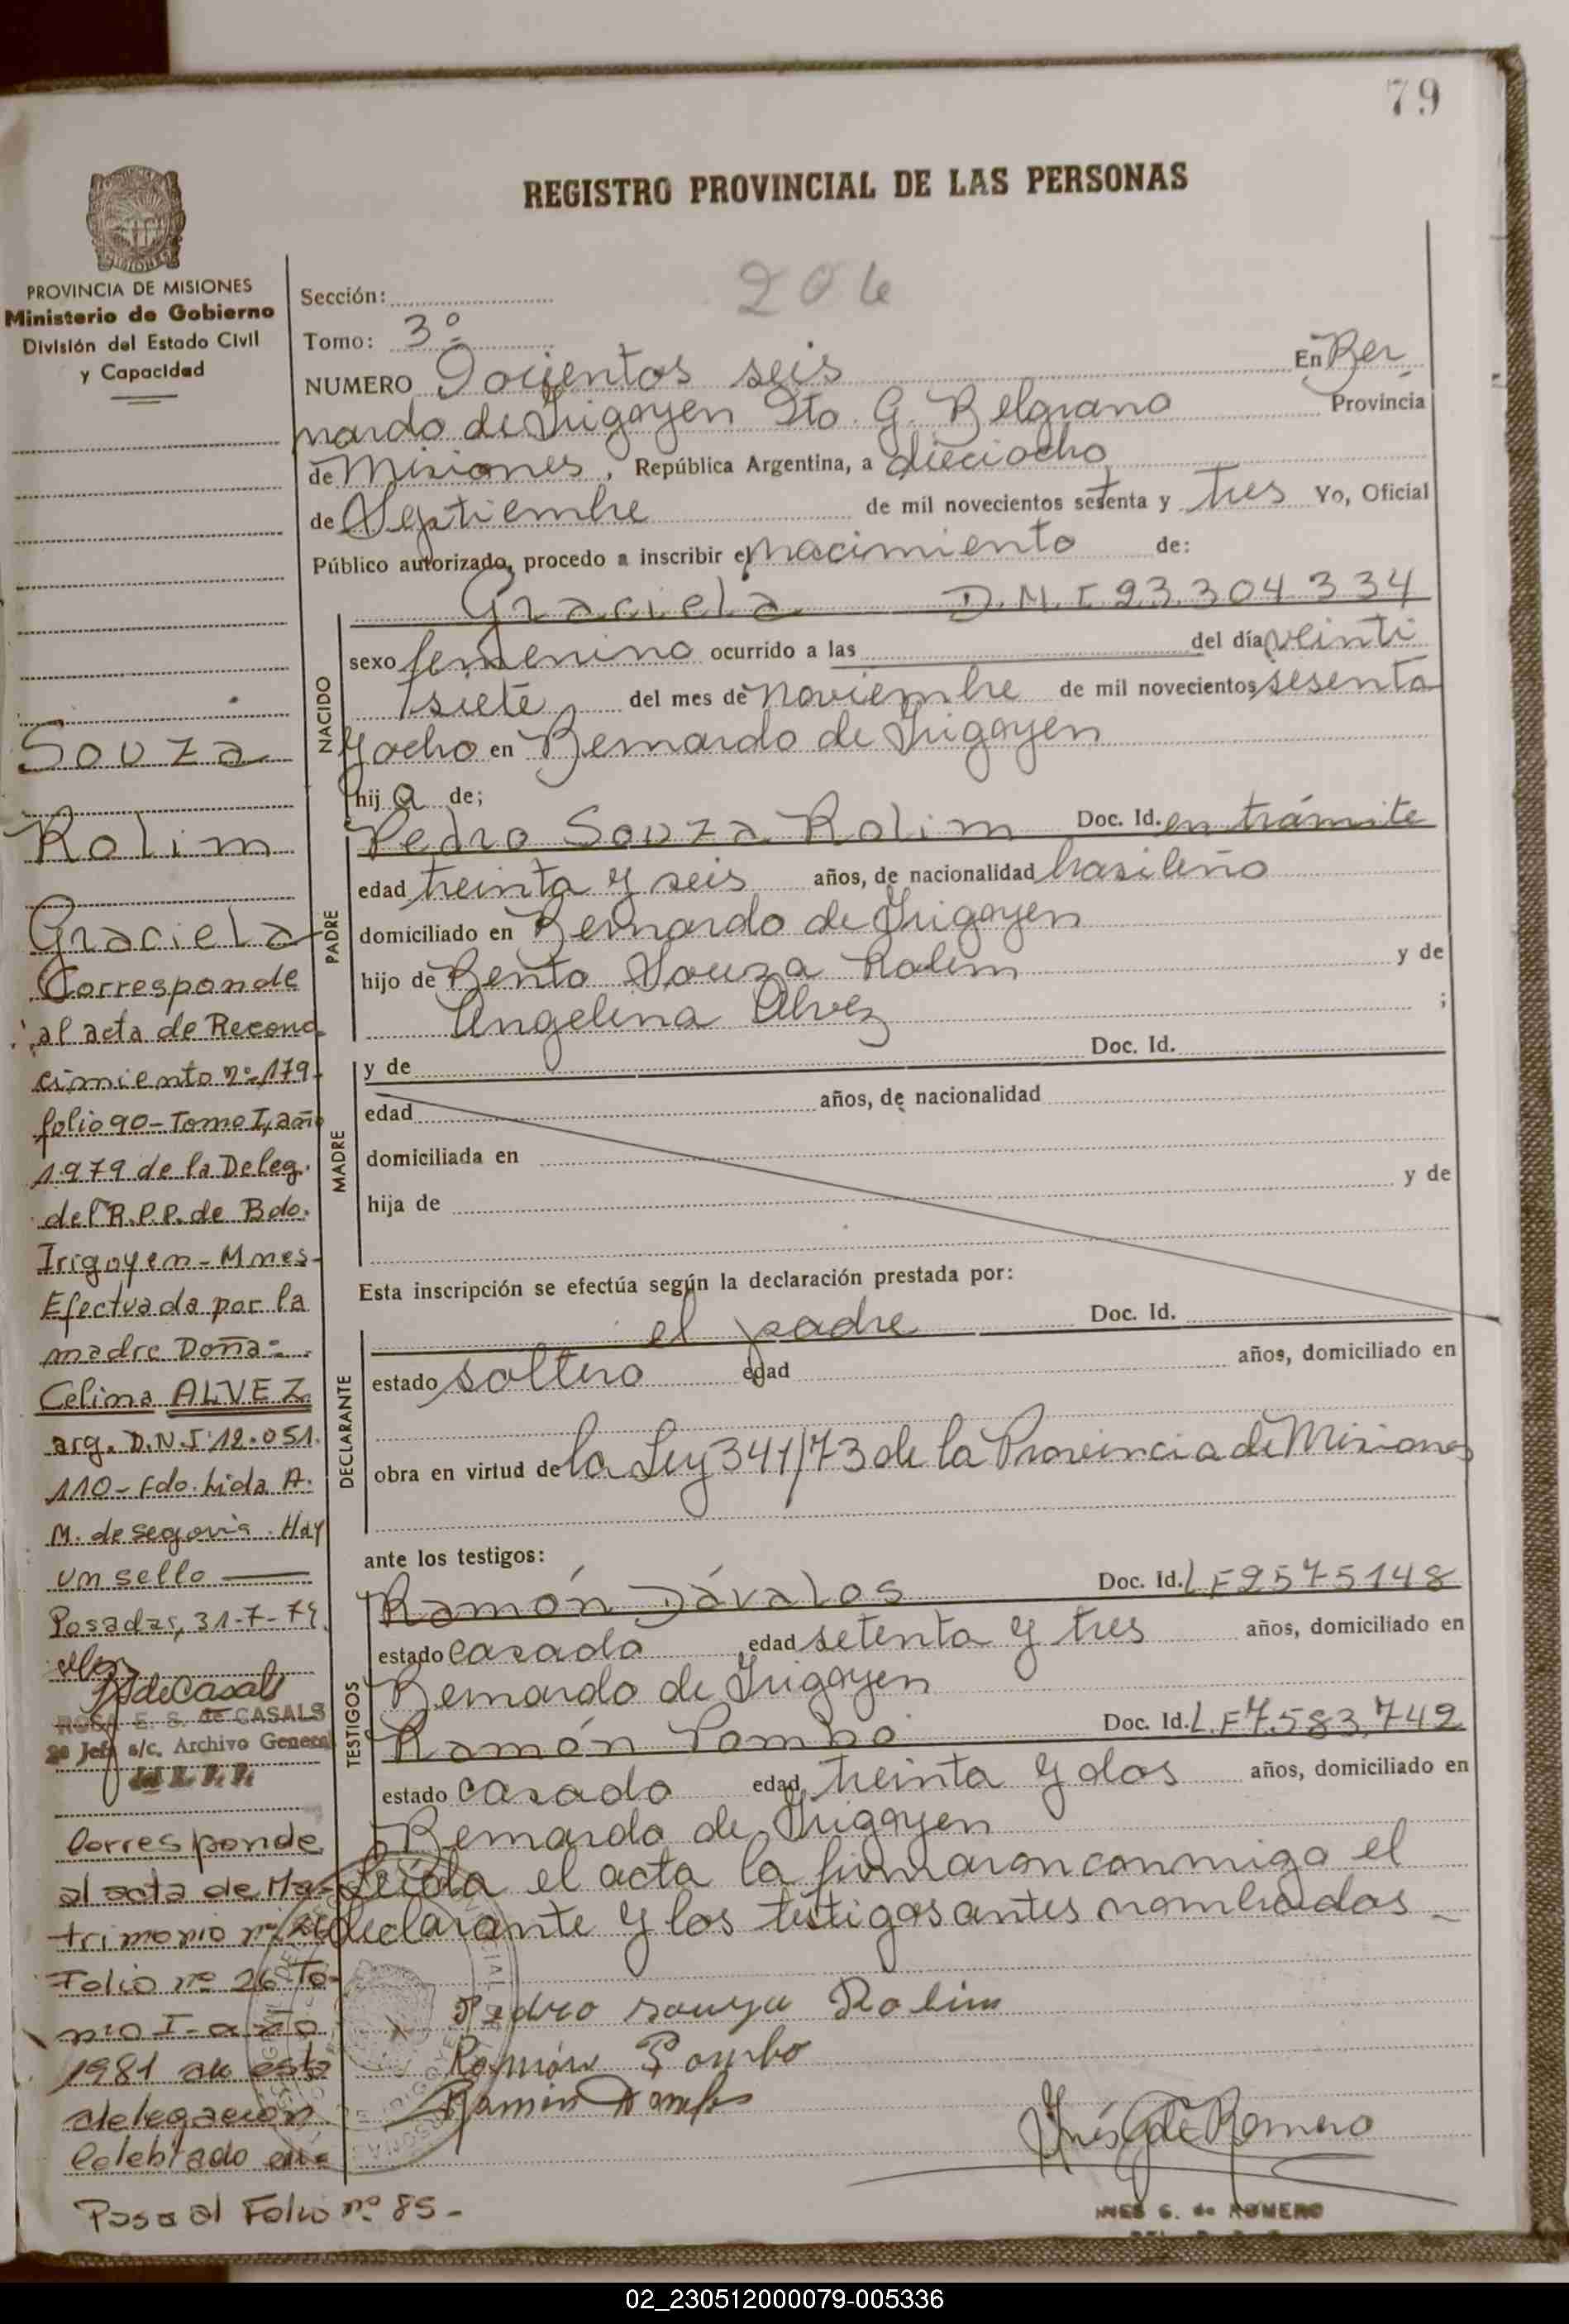 79
REGISTRO PROVINCIAL DE LAS PERSONAS
PROVINCIA DE MISIONES
Ministerio de Gobierno
División del Estado Civil
y Capacidad
Souza
Rolim
Graciela
Corresponde
al acta de Recono
cimiento nº 179-
folio 90 - Tomo I, año
1979 de la Deleg.
del R.P.P. de Bdo.
Irigoyen - Mnes-
Efectuada por la
madre Doña =
Celima ALVEZ
arg. D.N.I 12.051.
110 - fdo. Lida A.
M. de Segovia. Hay
un sello
Posadas, 31-7-79
ROSA E. S. de CASALS
2º Jefe a/c. Archivo General
del R. P. P.
Corresponde
al acta de Ma-
trimonio nº
Folio nº 26 To-
mo I - año
1981 de esta
delegación
Celebrado en =
Pasa al Folio nº 85 -
206
Sección:
Tomo: 3º
NUMERO Docientos seis En Ber
nardo de Irigoyen Dto. G. Belgrano Provincia
de Misiones, República Argentina, a dieciocho
de Septiembre de mil novecientos setenta y tres Yo, Oficial
Público autorizado, procedo a inscribir el nacimiento de:
NACIDO
Graciela D.N.I 93.304.334
sexo femenino ocurrido a las del día veinti
siete del mes de noviembre de mil novecientos sesenta
y ocho en Bernardo de Irigoyen
hij a de;
PADRE
Pedro Souza Rolim Doc. Id. en trámite
edad treinta y seis años, de nacionalidad brasileño
domiciliado en Bernardo de Irigoyen
hijo de Bento Souza Rolim y de
Angelina Alvez ;
MADRE
y de Doc. Id.
edad años, de nacionalidad
domiciliada en
hija de y de
Esta inscripción se efectúa según la declaración prestada por:
DECLARANTE
el padre Doc. Id.
estado soltero edad años, domiciliado en
obra en virtud de la Ley 341/73 de la Provincia de Misiones
ante los testigos:
TESTIGOS
Ramón Dávalos Doc. Id. L F 9575148
estado casado edad setenta y tres años, domiciliado en
Bernardo de Irigoyen
Ramón Pombo Doc. Id. L. F 7.583.749
estado casado edad treinta y dos años, domiciliado en
Bernardo de Irigoyen
Leída el acta la firmaron conmigo el
declarante y los testigos antes nombrados -
Pedro Souza Rolim
Ramón Pombo
Inés G de Romero
INES G. de ROMERO
02_230512000079-005336